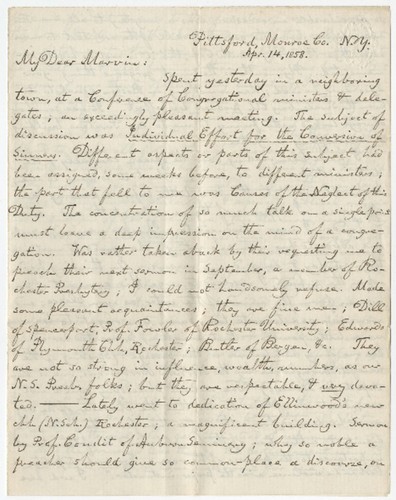 Pittsford, Monroe Co. N.Y.
Apr. 14, 1858.
My Dear Marvin:
Spent yesterday in a neighboring
town, at a Conference of Congregational ministers & dele-
gates; an exceedingly pleasant meeting. The subject of
discussion was Individual Effort for the Conversion of
Sinners. Different aspects or parts of this subject had
been assigned, some weeks before, to different ministers;
the part that fell to me was Causes of the Neglect of this
Duty. The concentration of so much talk on a single
must leave a deep impression on the mind of a congre-
gation. Was rather taken aback by their requesting me to
preach their next sermon in September, a member of Ro-
chester Presbytery; I could not handsomely refuse. Made
some pleasant acquaintances; they are fine men; Dill
of Spencerport, Prof. Fowler of Rochester University; Edwards
of Plymouth Chh, Rochester; Butler of Bergen, &c. They
are not so strong in influence, wealth, numbers, as our
N.S. Presb. folks; but they are respectable, & very devo-
ted. — Lately went to dedication of Ellinwood's new
chh (N. Sch.) Rochester; a magnificent building. Sermon
by Prof. Condit of Auburn Seminary; why so noble a
preacher should give so common-place a discourse, on